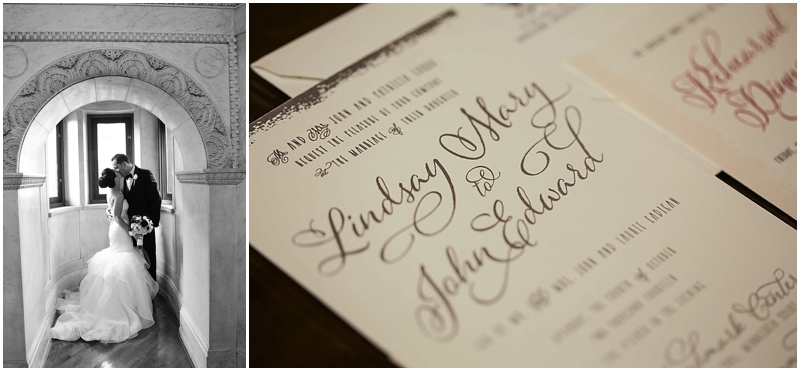 MR AND MRS JOHN AND PATRICIA
REQUEST THE PLEASURE OF YOUR COMPANY
AT THE MARRIAGE OF THEIR DAUGHTER
Lindsay Mary
to
John Edward
SON OF MR. AND MRS. JOHN AND LAURIE CADIGAN
SATURDAY, THE FOURTH OF OCTOBER
TWO THOUSAND FOURTEEN
O'CLOCK IN THE EVENING
Center
Rehearsal
Dinner